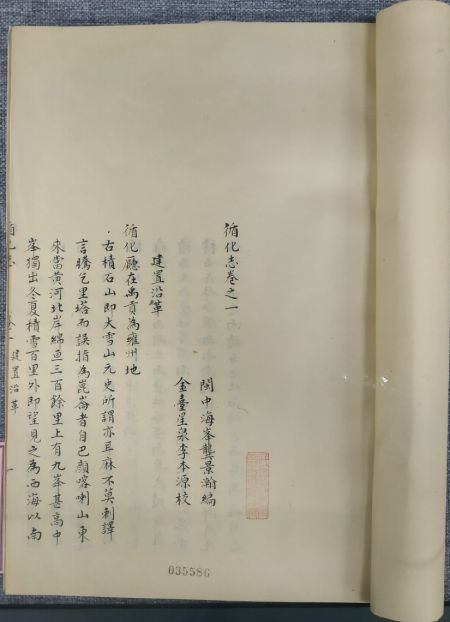 循化志卷之一
閩中海峯龔景瀚編
金臺星泉李本源校
建置沿革
循化廳在禹貢為雍州地
古積石山即大雪山元史所謂亦耳麻不莫剌譯
言騰乞里塔而誤指為崑崙者自巴顏喀喇山東
來當黃河北岸綿亘三百餘里上有九峯甚高中
峯獨出冬夏積雪百里外即望見之為西海以南
循化志 卷一 建置沿革 一
035586